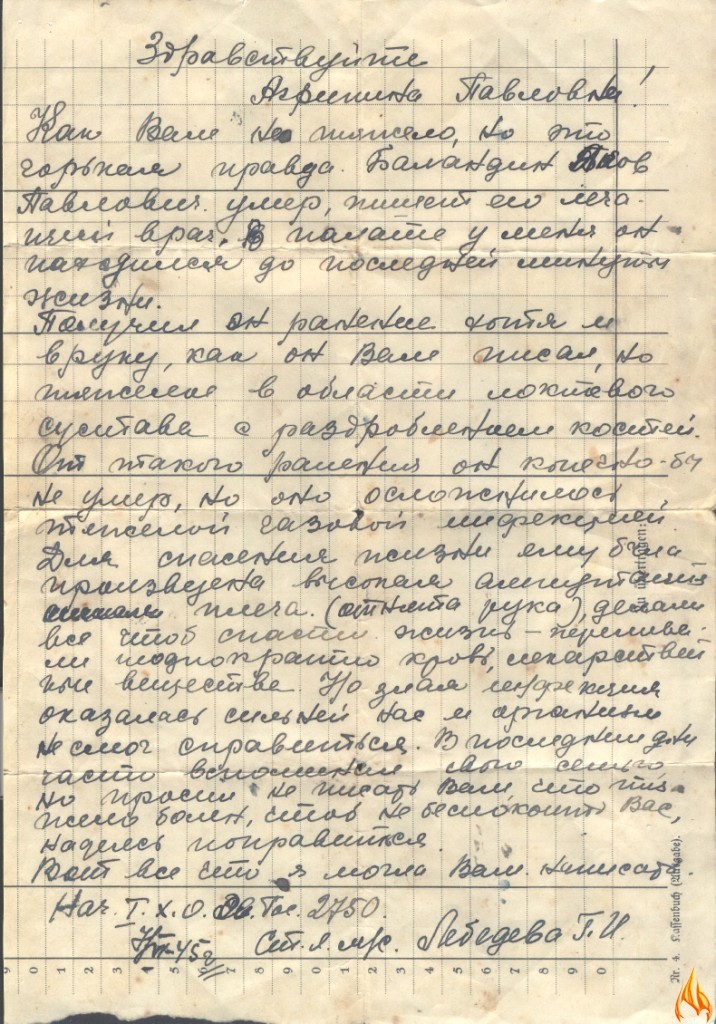 Здравствуйте
Агрипина Павловна!
Как Вам не тяжело, но это
горькая правда. Баландин Яков
Павлович умер, пишет его леча-
щий врач. В палате у меня он
находился до последней минуты
жизни.
Получил он ранение хотя и
в руку, как он Вам писал, но
тяжелое в области локтевого
сустава с раздроблением костей.
От такого ранения он конечно-бы
не умер, но оно осложнилось
тяжелой газовой инфекцией.
Для спасения жизни ему была
произведена высокая ампутация
плеча. (отнята рука), делали
все чтоб спасти жизнь – перелива-
ли неоднократно кровь, лекарствен
ные вещества. Но злая инфекция
оказалась сильней нас и организм
не смог справиться. В последние дни
часто вспоминал свою семью,
но просил не писать Вам, что тя-
жело болен, чтоб не беспокоить Вас,
надеясь поправится.
Вот все что я могла Вам написать.
Нач. I. х. о. Гос. 2750.
45г Ст. л. м/с. Лебедева Г. И.
9 0 1 2 3 4 5 6 7 8 9 0 1 2 3 4 5 6 7 8 9 0
Nr. 4. Kassenbuch (Ausgabe).